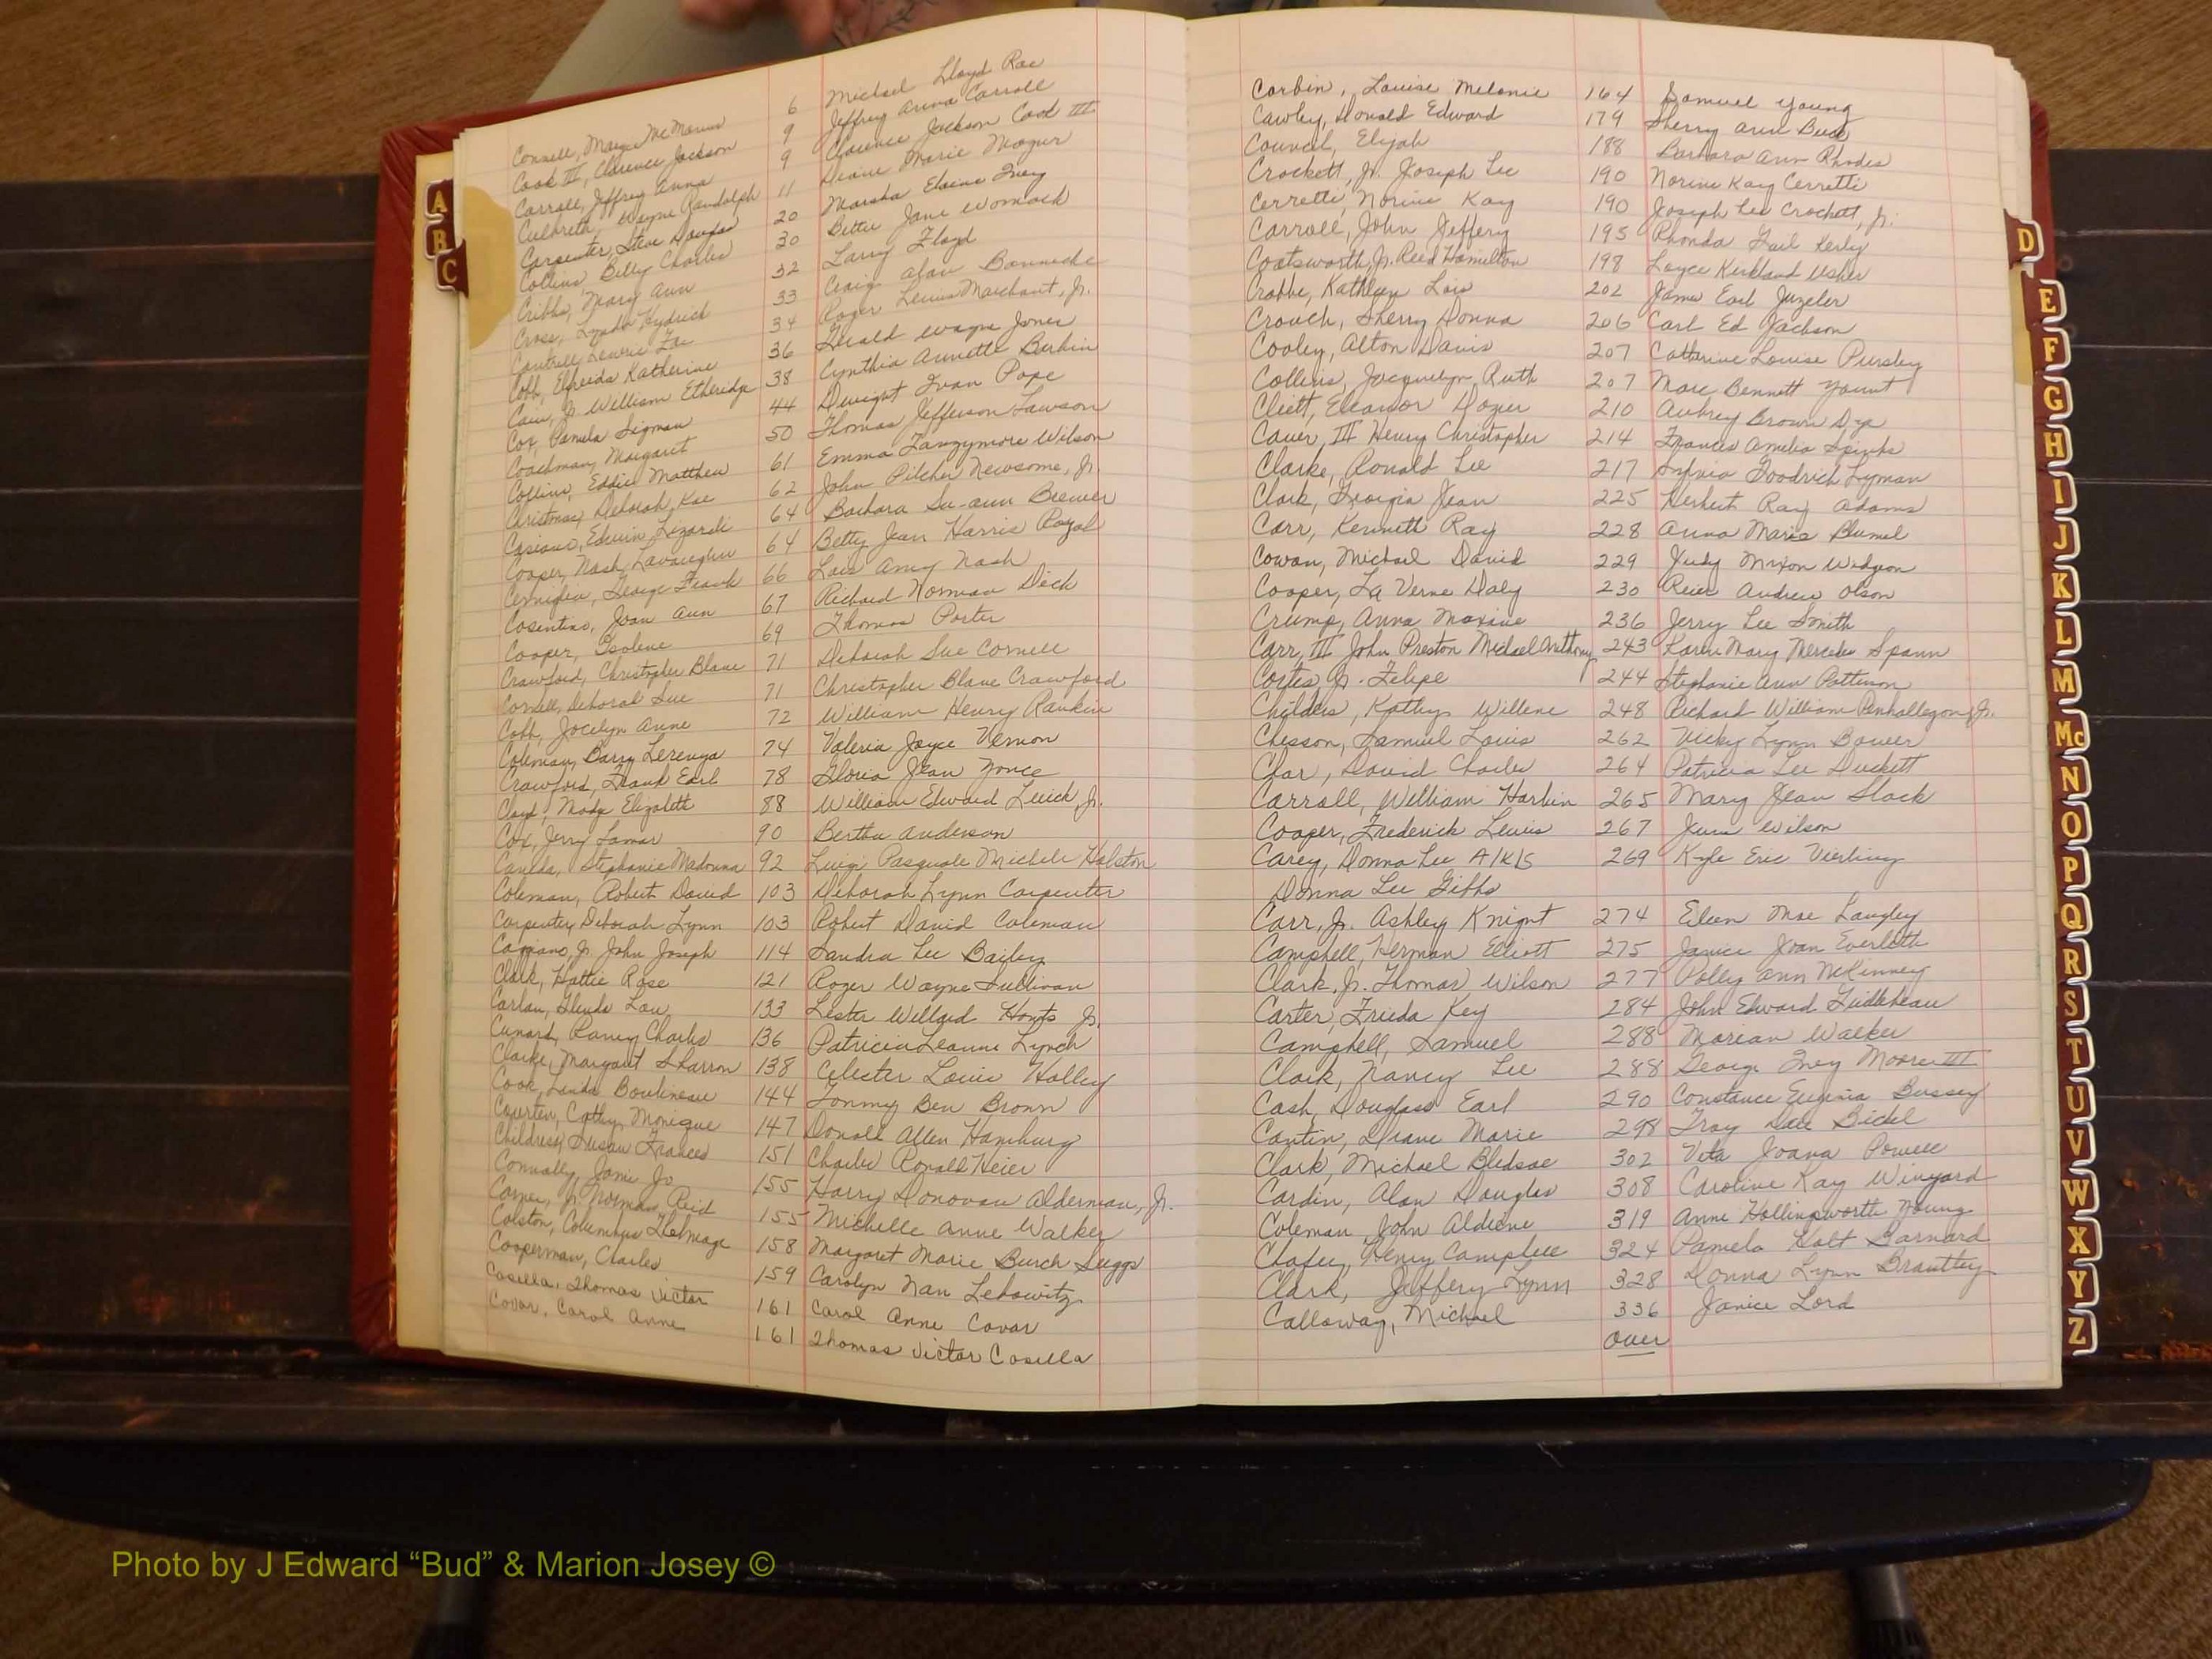 Connell, Marge McManus 6 Michael Lloyd Rae
Cook III, Clarence Jackson 9 Jeffrey Anna Carroll
Carroll, Jeffrey Anna 9 Clarence Jackson Cook III
Culbreth, Wayne Randolph 11 Diane Marie Mazur
Carpenter, Steve Douglas 20 Marsha Elaine Ivey
Collins, Billy Charles 30 Bettie Jane Womack
Cribbs, Mary Ann 32 Larry Floyd
Cross, Lynda Hydrick 33 Craig Alan
Cantrell, Lewrie Fae 34 Roger Lewis Marchant, Jr.
Cobb, Elfreeda Katherine 36 Gerald Wayne Jones
Cain, Jr. William Etheridge 38 Cynthia Annette Burkin
Cox, Pamela Sigman 44 Dwight Ivan Pope
Coachman, Margaret 50 Thomas Jefferson Lawson
Collins, Eddie Matthew 61 Emma Tanzymore Wilson
Christmas, Deborah Kae 62 John Pilcher Newsome, Jr.
Casiano, Edwin Lizardi 64 Barbara Su-ann Brewer
Cooper, Nash Lavaughn 64 Betty Jean Harris Royal
George Frank 66 Lois Amy Nash
Cosentino, Joan Ann 67 Richard Norman Dick
Cooper, Isolene 69 Thomas Porter
Crawford, Christopher Blane 71 Deborah Sue Cornell
Cornell, Deborah Sue 71 Christopher Blane Crawford
Cobb, Jocelyn Anne 72 William Henry Rankin
Coleman, Barry Lerenza 74 Valeria Joyce Vernon
Crawford, Frank Earl 78 Gloria Jean Yonce
Cloyd, Madge Elizabeth 88 William Edward Luick, Jr.
Cox, Jerry Lamar 90 Bertha Anderson
Stephanie Madonna 92 Luigi Pasquale Michele Halston
Coleman, Robert David 103 Deborah Lynn Carpenter
Carpenter, Deborah Lynn 103 Robert David Coleman
Caggiano, Jr. John Joseph 114 Sandra Lee Bailey
Clark, Hattie Rose 121 Roger Wayne Sullivan
Carlan, Glenda Lou 133 Lester Willard Hoyts Jr.
Cunard, Raney Charles 136 Patricia Leanne Lynch
Clarke, Margaret Sharron 138 Celester Louis Holley
Cook, Linda Boulineau 144 Tommy Ben Brown
Cathey Monique 147 Donald Allen Hamburg
Childress, Susan Frances 151 Charles Ronald Heier
Connally, Janie Jo 155 Harry Donovan Alderman, Jr.
Comer, Jr. Norman Reid 155 Michelle Anne Walker
Colston, Columbus Thelmage 158 Margaret Marie Burch Suggs
Cooperman, Charles 159 Carolyn Nan Lebowitz
Casella, Thomas Victor 161 Carol Anne Covar
Covar, Carol Anne 161 Thomas Victor Casella
Corbin, Louise Melanie 164 Samuel Young
Cawley, Donald Edward 179 Sherry Ann Buse
Council, Elijah 188 Barbara Ann Rhodes
Crockett, Jr. Joseph Lee 190 Norine Kay Cerretti
Cerretti, Norine Kay 190 Joseph Lee Crockett, Jr.
Carroll, John Jeffery 195 Rhonda Gail Kerby
Coatsworth, Jr. Reed Hamilton 198 Loyce Kirkland Usher
Crabbe, Kathleen Lois 202 James Earl Juzeler
Crouch, Sherry Donna 206 Carl Ed Jackson
Cooley, Alton Davis 207 Catherine Louise Pursley
Collins, Jacquelyn Ruth 207 Marc Bennett Yount
Cliett, Eleanor Dozier 210 Aubrey Brown Dye
Cauer, III Henry Christopher 214 Frances Amelia Spinks
Clarke, Ronald Lee 217 Sylvia Goodrich Lyman
Clark, Georgia Jean 225 Herbert Ray Adams
Carr, Kenneth Ray 228 Anna Maria Blumel
Cowan, Michael David 229 Judy Mixon Widgeon
Cooper, La Verne Daly 230 Reier Andrew Olson
Crump, Anna Maxine 236 Jerry Lee Smith
Carr, III John Preston Michael Anthony 243 Karen Mary Mercedes Spann
Cortes, Jr. Felipe 244 Stephanie Ann Patterson
Childers, Kathy Willene 248 Richard William Penhallegon, Jr.
Chesson, Samuel Louis 262 Vicky Lynn Bower
Char, David Charles 264 Patricia Lee Duckett
Carroll, William Harbin 265 Mary Jean Slack
Cooper, Frederick Lewis 267 June Wilson
Carey, Donna Lee A/K/S 269 Kyle Eric Vierling
Donna Lee Gibbs
Carr, Jr. Ashley Knight 274 Eileen Mae Langley
Campbell, Herman Elliott 275 Janice Joan Everleth
Clark, Jr. Thomas Wilson 277 Polly Ann McKinney
Carter, Frieda Key 284 John Edward
Campbell, Samuel 288 Marian Walker
Clark, Nancy Lee 288 George Ivey Moore III
Cash, Douglass Earl 290 Constance Eugenia Bussey
Cantin, Diane Marie 298 Troy Dale Bickel
Clark, Michael Bledsoe 302 Vita Joana Powell
Cardin, Alan Douglas 308 Caroline Kay Winyard
Coleman John Aldione 319 Anne Hollingsworth Young
Chafee, Henry Campbell 324 Pamela Holt Barnard
Clark, Jeffery Lynn 328 Donna Lynn Brantley
Calloway, Michael 336 Janice Lord
Over
A
B
C
D
E
F
G
H
I
J
K
L
M
Mc
N
O
P
Q
R
S
T
U
V
W
X
Y
Z
Photo by J Edward “Bud” & Marion Josey ©